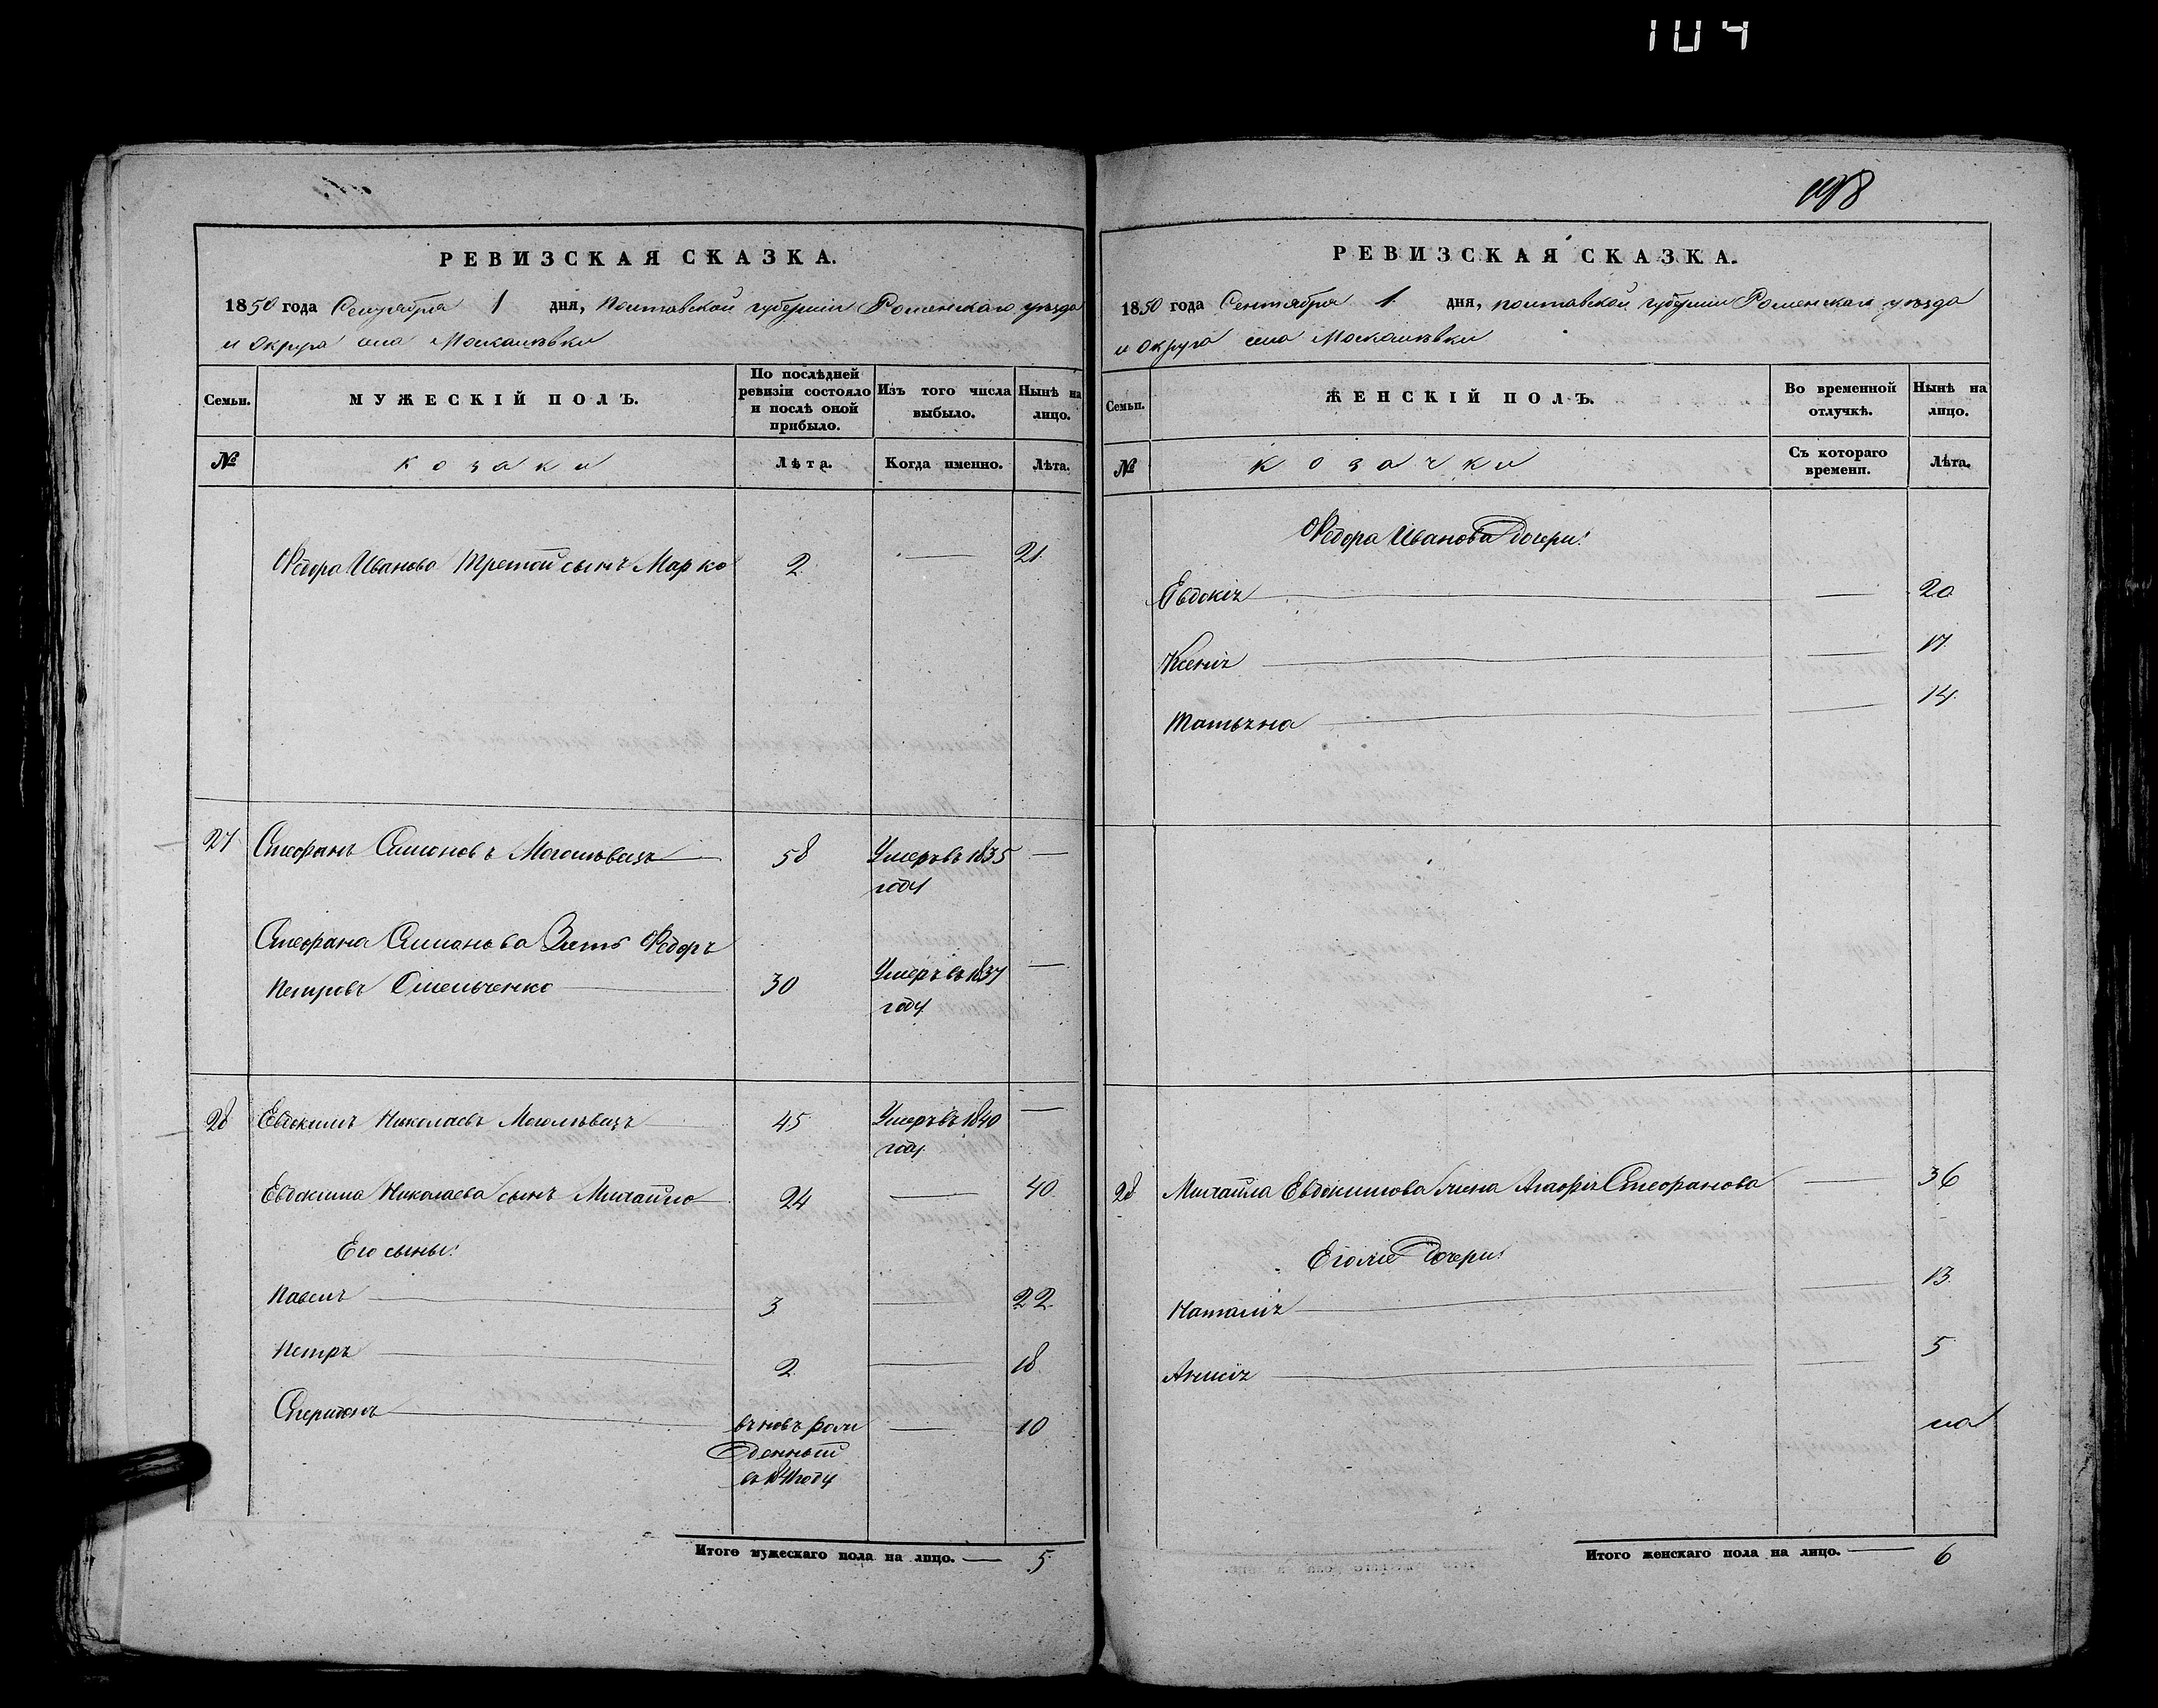 104
198
РЕВИЗСКАЯ СКАЗКА.
1850 года Сентября 1 дня, Полтавской губернии Роменскаго уѣзда
и округа села Москалѣвки
Семьи.
МУЖЕСКІЙ ПОЛЪ.
По послѣдней ревизіи состояло и послѣ оной прибыло.
Изъ того числа выбыло.
Нынѣ на лицо.
№
козаки
Лѣта.
Когда именно.
Лѣта.
Федора Иванова Третой сынъ Марко 2 — 21
27 Стефанъ Симоновъ Моголѣвецъ 58 Умеръ въ 1835 —
году
Стефана Симонова Зять Федоръ
Петровъ Омельченко 30 Умеръ въ 1837 —
году
28 Евдокимъ Николаевъ Моголѣвецъ 45 Умеръ въ 1840 —
году
Евдокима Николаева сынъ Михайло 24 — 40
Его сыны:
Павелъ 3 — 22
Петръ 2 — 18
Спиридонъ вновь рож — 10
денный
въ году
Итого мужескаго пола на лицо. — 5
РЕВИЗСКАЯ СКАЗКА.
1850 года Сентября 1 дня, полтавской губернии Роменскаго уѣзда
и округа села Москалѣвки
Семьи.
ЖЕНСКІЙ ПОЛЪ.
Во временной отлучкѣ.
Нынѣ на лицо.
№
козачки
Съ котораго времени.
Лѣта.
Федора Иванова дочери:
Евдокія — 20
Ксенія — 17
Татьяна — 14
28 Михайла Евдокимова жена Агафія Стефанова — 36
Его же дочери:
Наталія — 13
Анна — 5
Итого женскаго пола на лицо. — 6